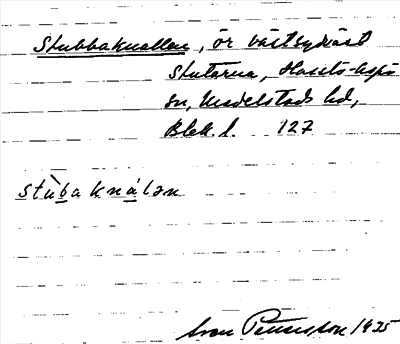 Stubbaknallen, ör västsydväst
Stutarna, Hasslö-Aspö
sn, Medelstads hd,
Blek. l. 127
stùba knálən
Sven Benson 1935